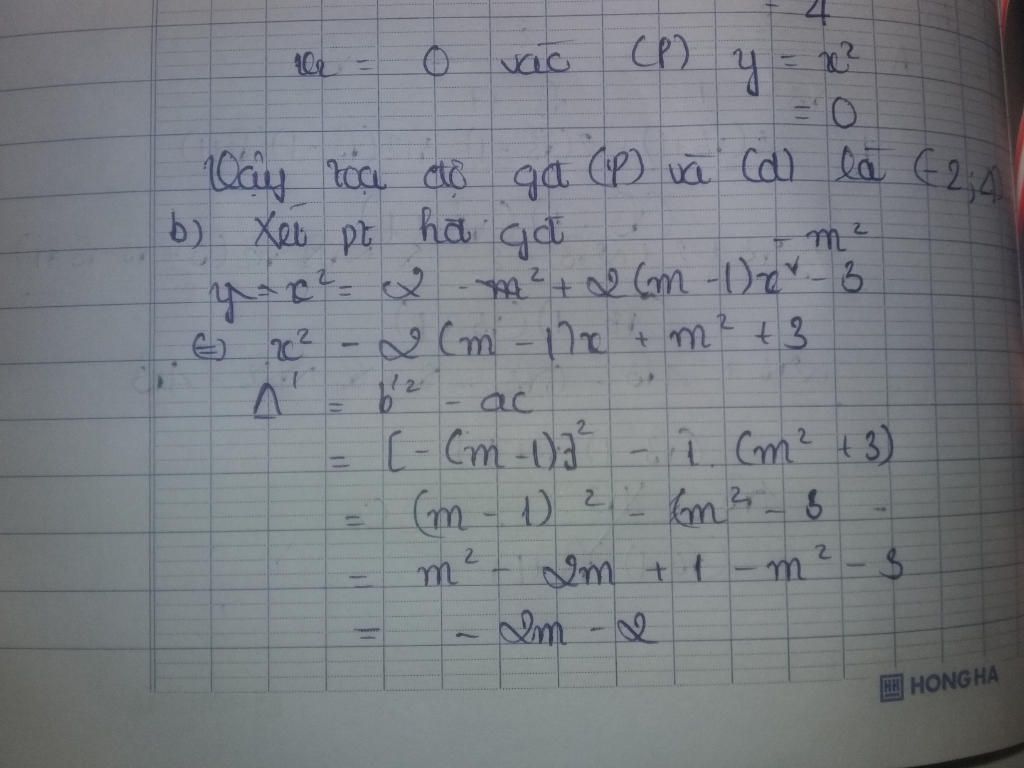 - 4
= 0 vào (P) y = x²
= 0
Vậy tọa độ gđ (P) và (d) là (-2; 4
b) Xét pt hđ gđ
- m²
y = x² = 2 - m² + 2(m - 1)x - 3
⇔ x² - 2(m - 1)x + m² + 3
Δ' = b'² - ac
= [-(m - 1)]² - 1. (m² + 3)
= (m - 1)² - (m² - 3
= m² - 2m + 1 - m² - 3
= - 2m - 2
HONG HA